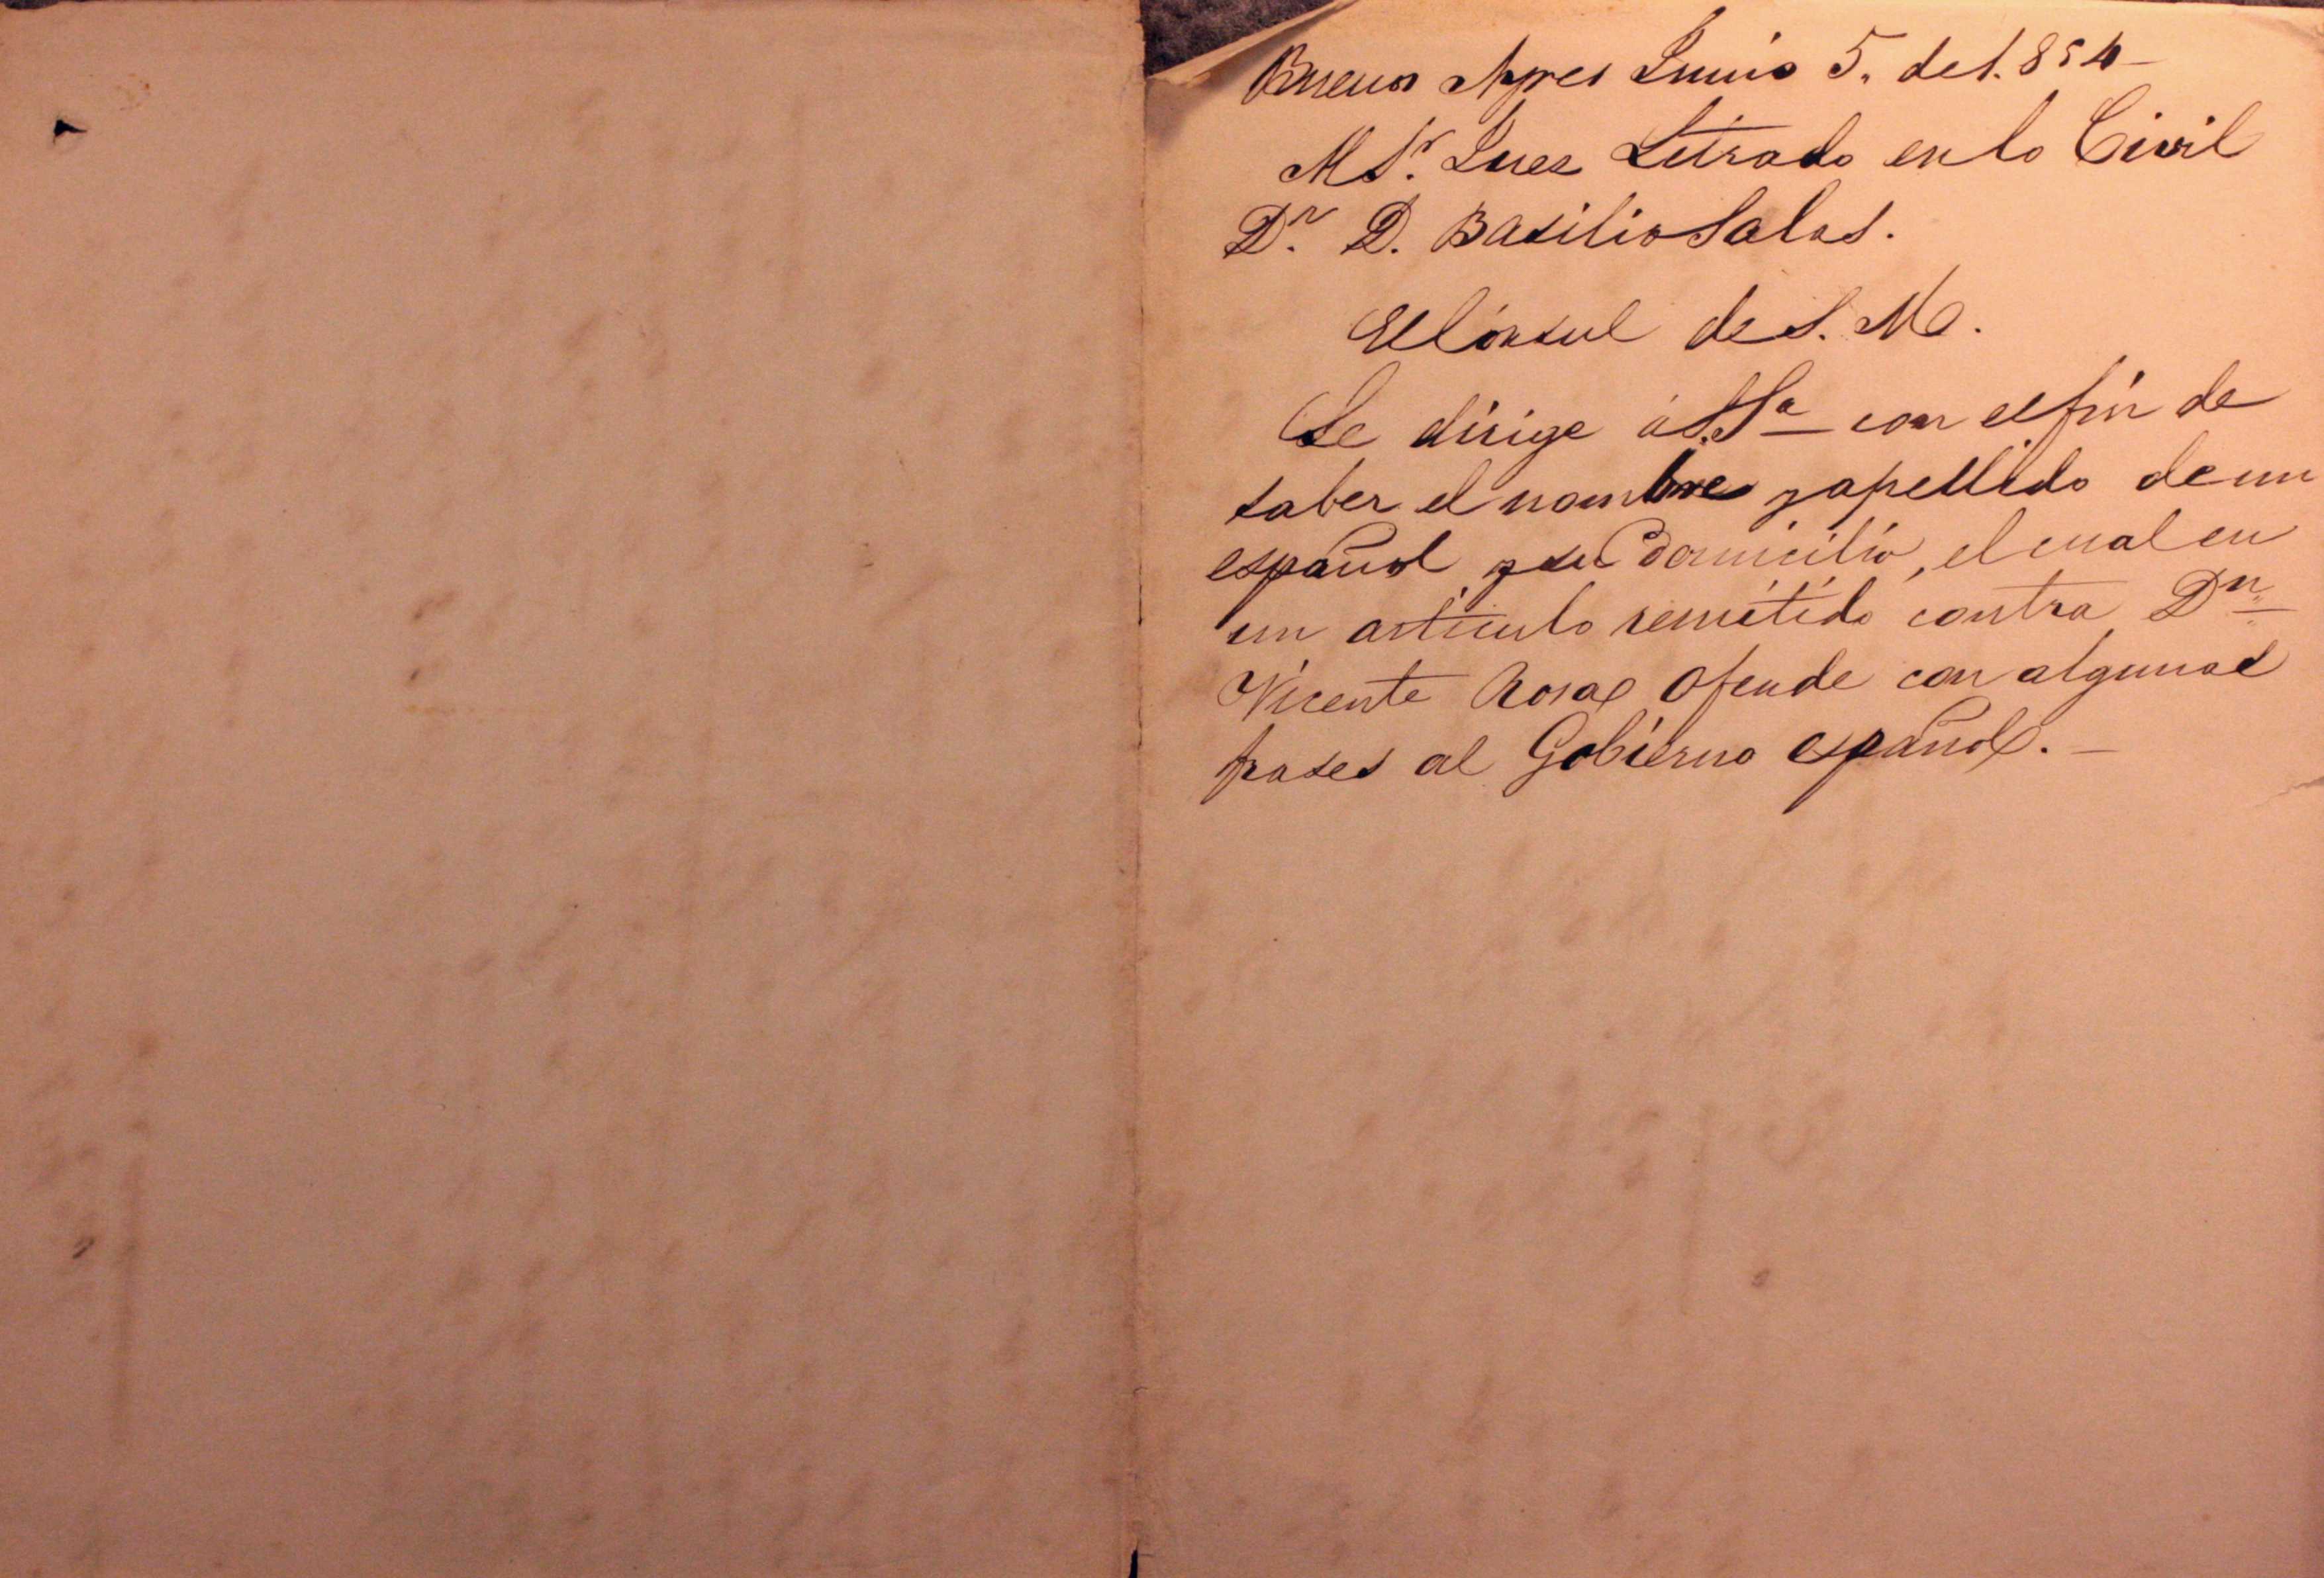 Buenos Ayres Junio 5. de 1.854-
Al Sr. Juez Letrado en lo Civil
Dr. D. Basilio Salas.
El Cónsul de S. M.
Se dirige á S.Sa con el fin de
saber el nombre y apellido de un
español y su domicilio, el cual en
un articulo remitido contra Dn.
Vicente Rosa ofende con algunas
frases al Gobierno español. -